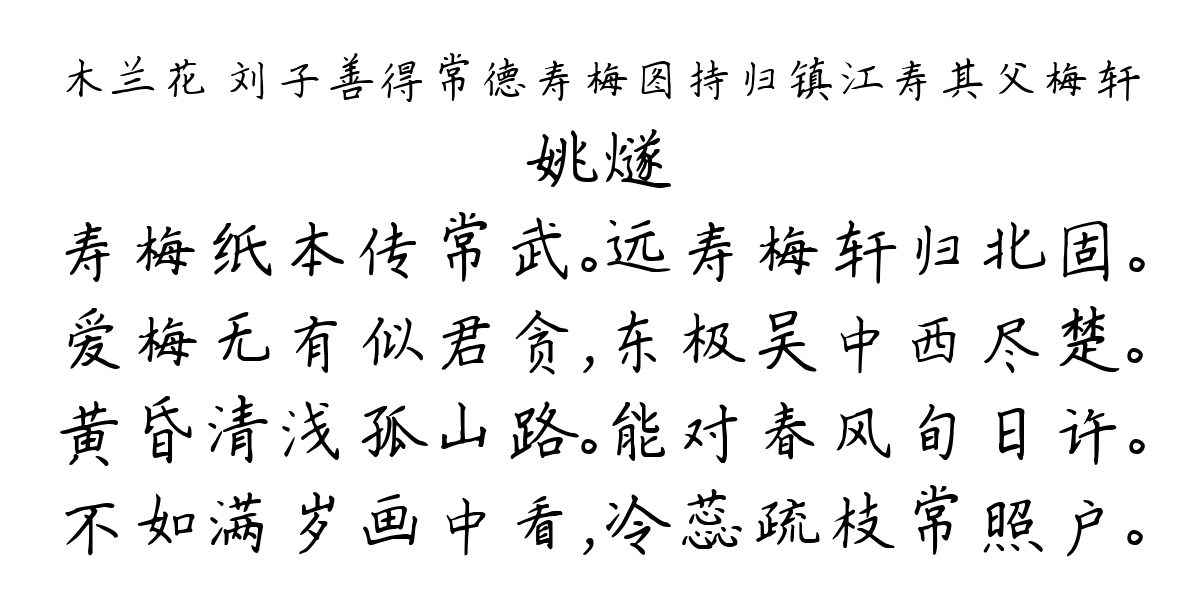 木兰花 刘子善得常德寿梅图持归镇江寿其父梅轩
姚燧
寿梅纸本传常武。远寿梅轩归北固。
爱梅无有似君贪,东极吴中西尽楚。
黄昏清浅孤山路。能对春风旬日许。
不如满岁画中看,冷蕊疏枝常照户。